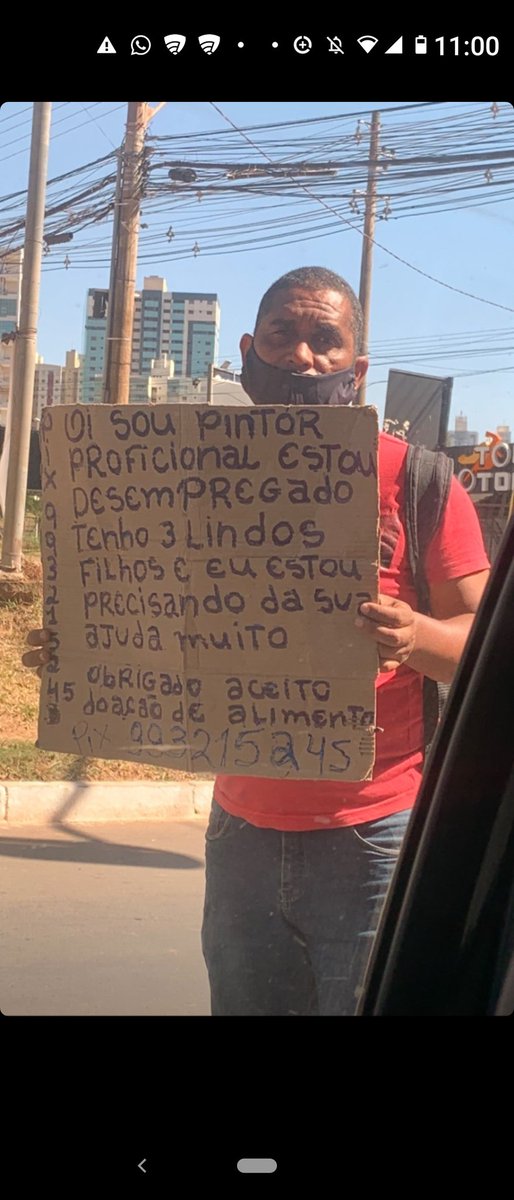 11:00
OI SOU PINTOR
PROFICIONAL ESTOU
DESEMPREGADO
TENHO 3 LINDOS
FILHOS E EU ESTOU
PRECISANDO DA SUA
AJUDA MUITO
OBRIGADO ACEITO
DOAÇÃO DE ALIMENTO
Pix 993215245
P
I
X
9
9
3
2
1
5
2
45